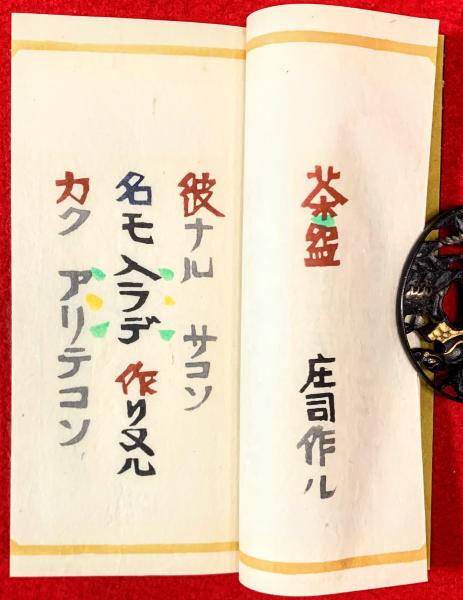 茶盌 庄司作ル
彼ナル サコソ
名モ入ラデ 作リヌル
カク アリテコソ